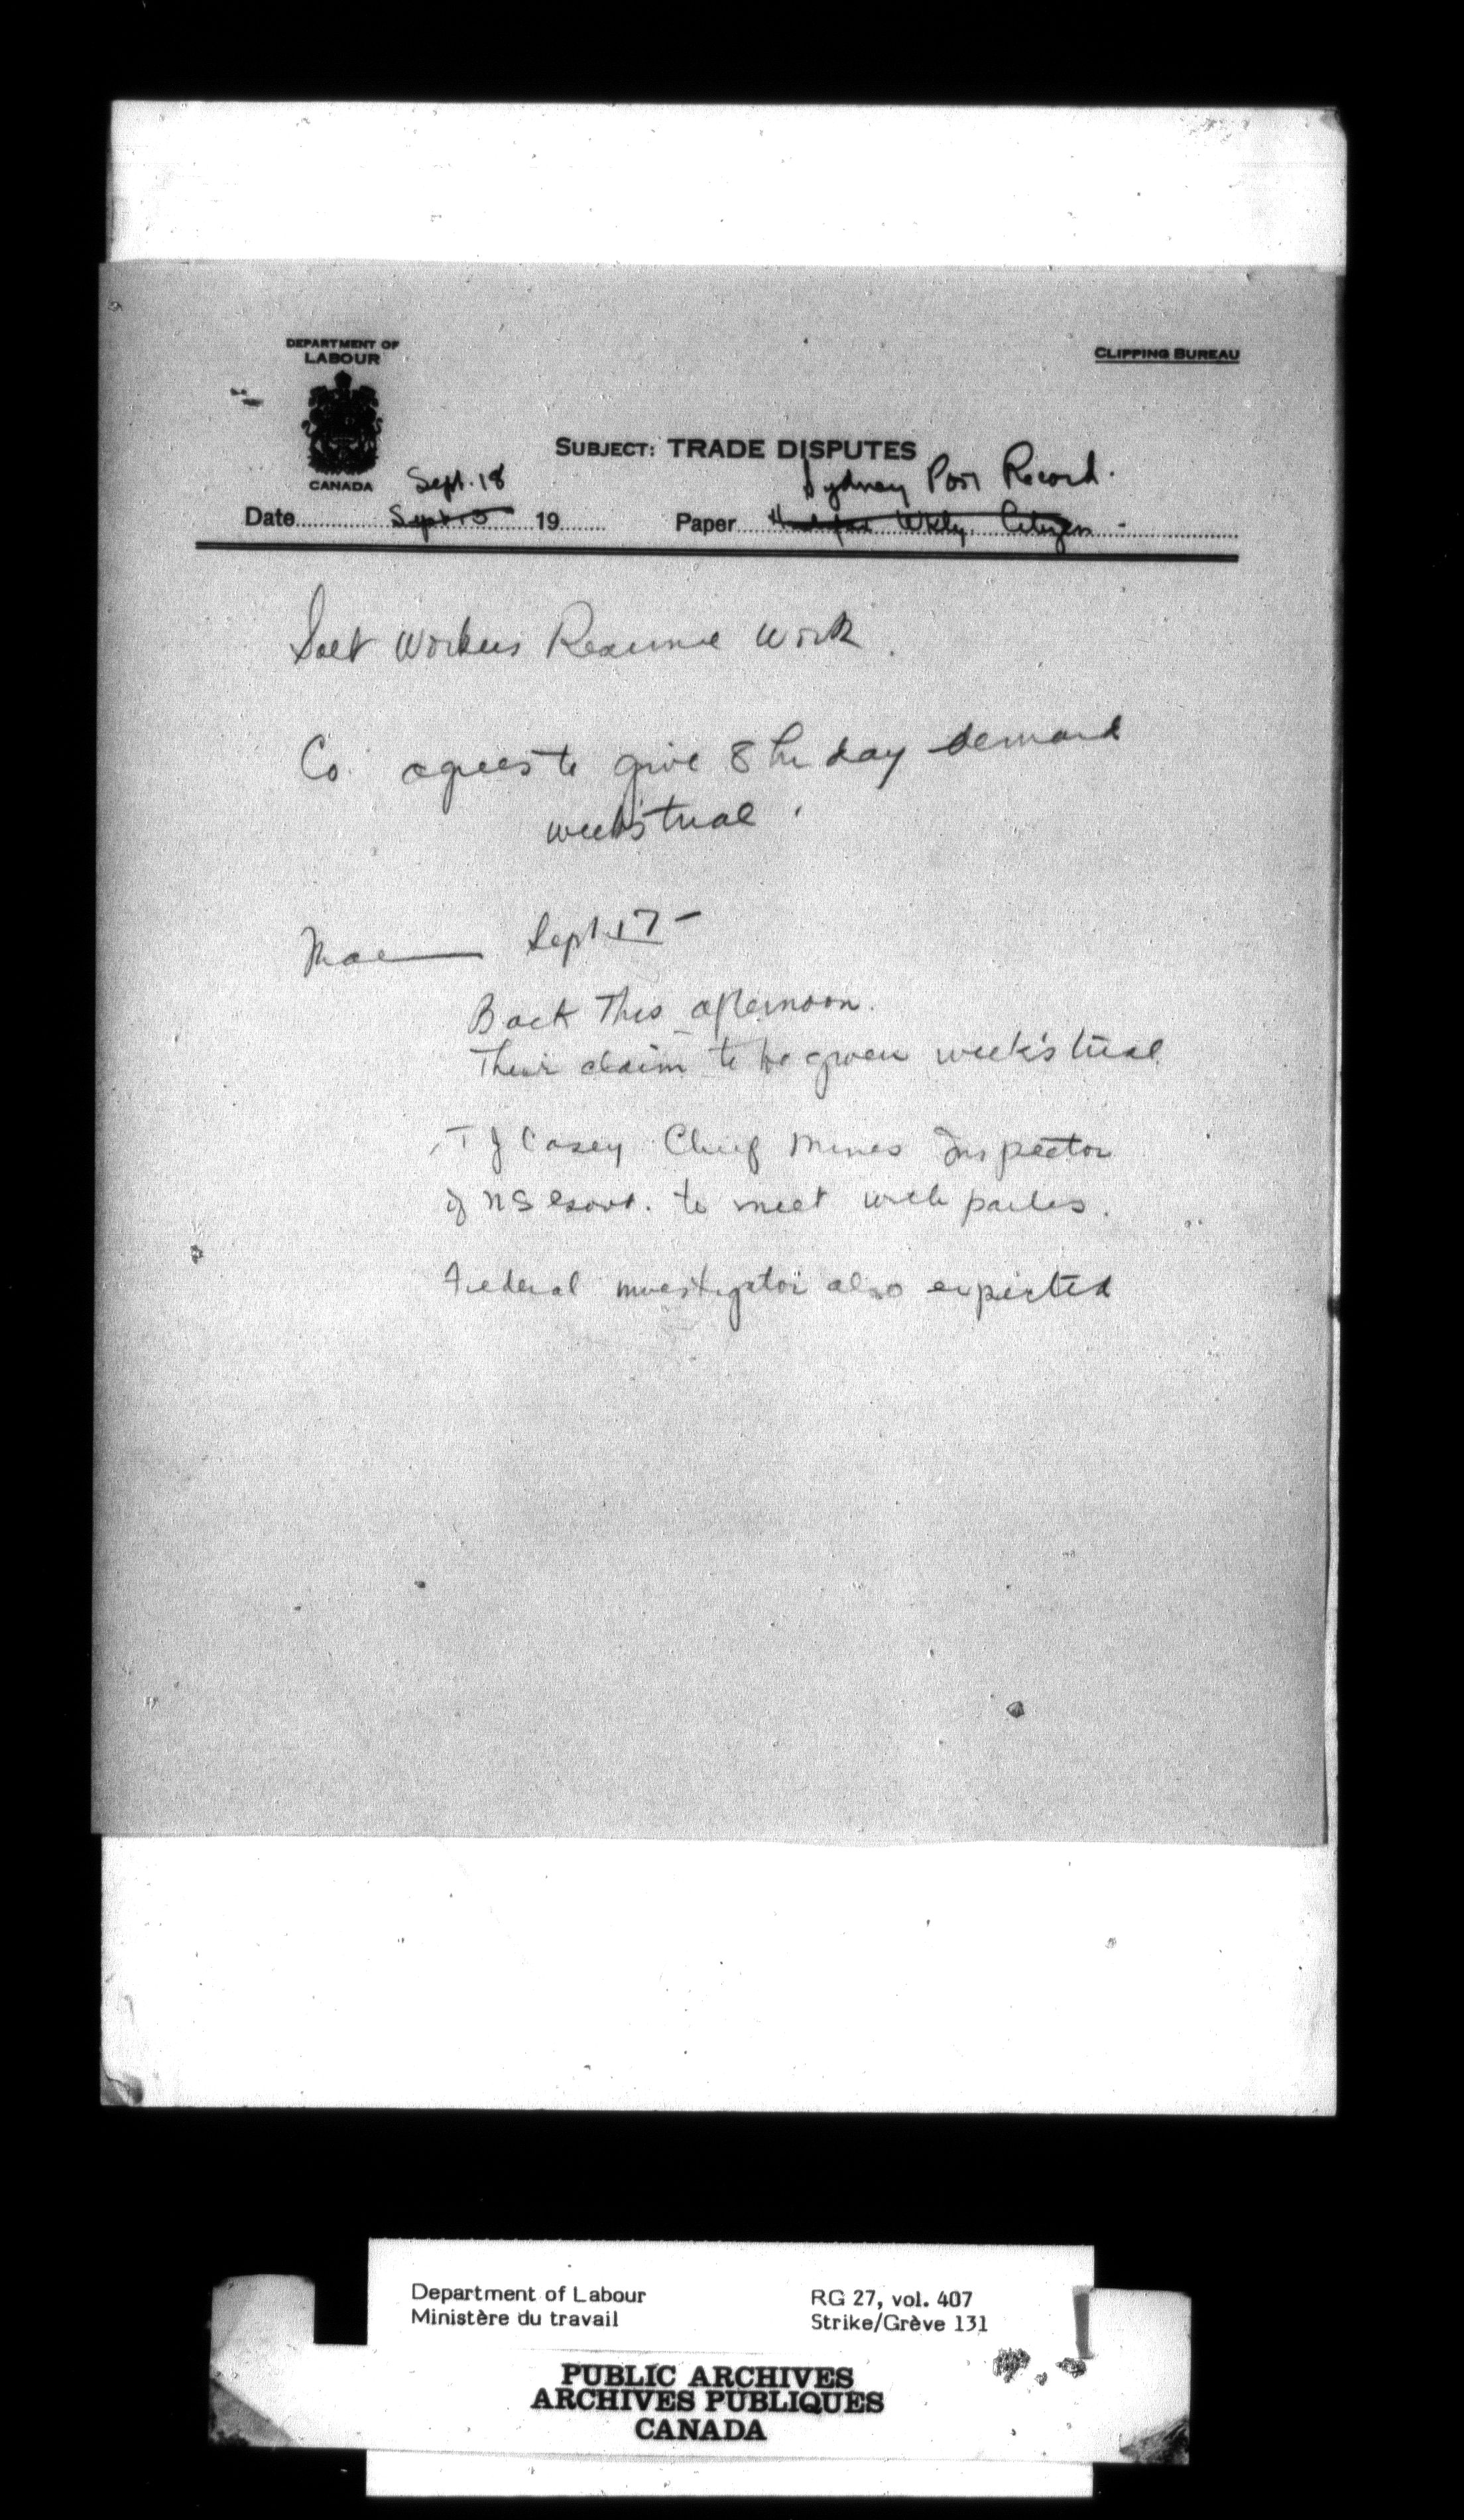 DEPARTMENT OF
LABOUR
CANADA
CLIPPING BUREAU
SUBJECT: TRADE DISPUTES
Sept. 18
Sydney Post Record.
Date Sept 15 19 Paper Halifax Wkly. Citizen -
Salt Workers Resume Work.
Co. agrees to give 8 hr day demand
week's trial.
Sept 17 -
Back this afternoon.
Their claim to be given week's trial
T J Casey Chief Mines Inspector
of NS Govt. to meet with parties.
Federal investigator also expected
Department of Labour
Ministère du travail
RG 27, vol. 407
Strike/Grève 131
PUBLIC ARCHIVES
ARCHIVES PUBLIQUES
CANADA